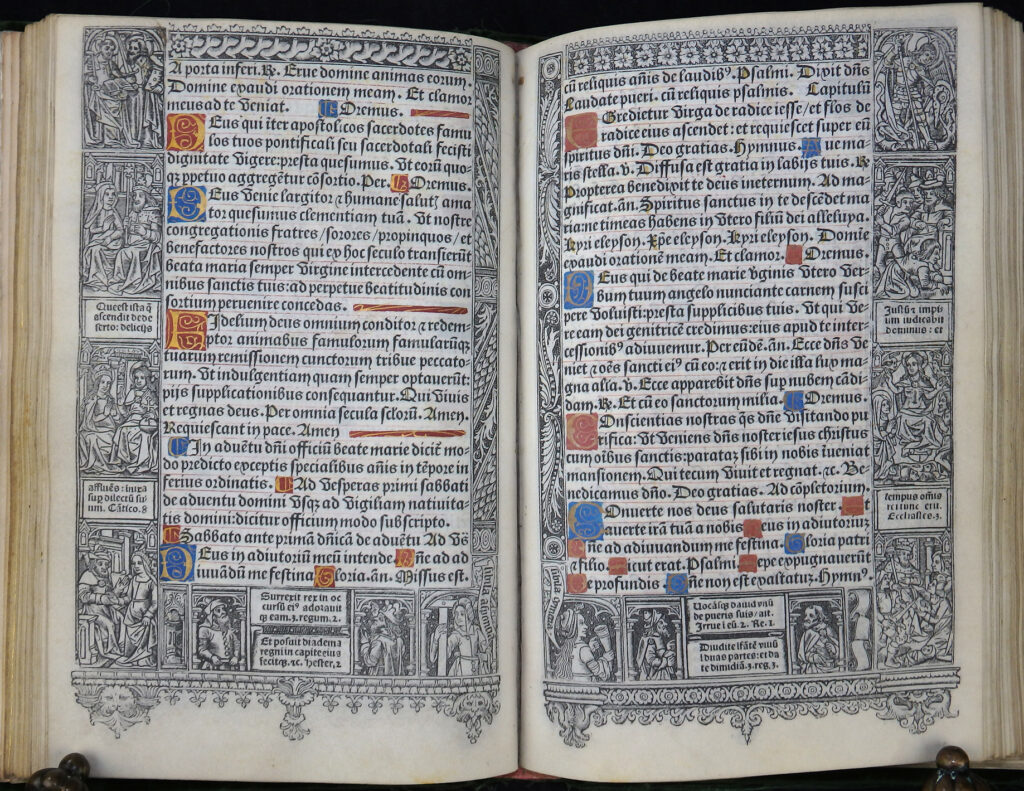 A porta inferi. ℞. Erue domine animas eorum.
Domine exaudi orationem meam. Et clamor
meus ad te veniat. Oremus.
Deus qui īter apostolicos sacerdotes famu
los tuos pontificali seu sacerdotali fecisti
dignitate vigere: presta quesumus. Vt eorū quo
qꝫ ppetuo aggregētur cōsortio. Per. Oremus.
Deus venie largitor ⁊ humane salutꝭ ama
tor quesumus clementiam tuā. Vt nostre
congregationis fratres / sorores / propinquos / et
benefactores nostros qui ex hoc seculo transierūt
beata maria semper virgine intercedente cū om-
nibus sanctis tuis: ad perpetue beatitudinis con
sortium peruenire concedas.
Fidelium deus omnium conditor ⁊ redem-
ptor animabus famulorum famularūqꝫ
tuarum remissionem cunctorum tribue peccato-
rum. Vt indulgentiam quam semper optauerūt:
pijs supplicationibus consequantur. Qui viuis
et regnas deus. Per omnia secula sclorū. Amen.
Requiescant in pace. Amen
In aduētu dn̄i officiū beate marie dicit̄ mo-
do predicto exceptis specialibus an̄is in tēpore in
ferius ordinatis. Ad vesperas primi sabbati
de aduentu domini vsqꝫ ad vigiliam natiuita
tis domini: dicitur officium modo subscripto.
Sabbato ante primā dn̄icā de aduētu. Ad vs̄
Deus in adiutoriū meū intende. Dn̄e ad ad
iuuādū me festina. Gloria. an̄. Missus est.
Que est ista q̄
ascendit de de
serto: delicijs
affluēs: inixa
sup dilectū su
um. Cātico. 8
Surrexit rex in oc
cursū eiꝰ adorauit
qꝫ eam. 3. regum. 2.
Et posuit diadema
regni in capite eius
fecitqꝫ. ⁊c. hester. 2
cū reliquis an̄is de laudibꝰ. Psalmi. Dixit dn̄s
Laudate pueri. cū reliquis psalmis. Capitulū
Egredietur virga de radice iesse / et flos de
radice eius ascendet: et requiescet super eū
spiritus dn̄i. Deo gratias. Hymnus. Aue ma-
ris stella. v. Diffusa est gratia in labijs tuis. ℞
Propterea benedixit te deus ineternum. Ad ma-
gnificat. an̄. Spiritus sanctus in te descēdet ma
ria: ne timeas habens in vtero filiū dei alleluya.
Kyri eleyson. Xp̄e eleyson. Kyri eleyson. Domīe
exaudi orationem meam. Et clamor. Oremus.
Deus qui de beate marie vginis vtero ver-
bum tuum angelo nunciante carnem susci
pere voluisti: presta supplicibus tuis. Vt qui ve-
re eam dei genitricē credimus: eius apud te inter-
cessionibꝰ adiuuemur. Per eūdē. an̄. Ecce dn̄s ve
niet ⁊ oēs sancti eiꝰ cū eo: ⁊ erit in die illa lux ma
gna alla. v. Ecce apparebit dn̄s sup nubem cādi-
dam. ℞. Et cū eo sanctorum milia. Oremus.
Conscientias nostras qs dn̄e visitando pu
rifica: vt veniens dn̄s noster iesus christus
cum oībus sanctis: paratā sibi in nobis īueniat
mansionem. Qui tecum viuit et regnat. ⁊c. Be-
nedicamus dn̄o. Deo gratias. Ad cōpletorium.
Conuerte nos deus salutaris noster. Et
auerte irā tuā a nobis. Deus in adiutoriuꝫ
Dn̄e ad adiuuandum me festina. Gloria patri
⁊ filio. Sicut erat. Psalmi. Sepe expugnauerūt
De profundis. Dn̄e non est exaltatuꝫ. Hymnꝰ.
Justū ⁊ impi
um iudicabit
dominus: et
tempus omīs
rei tunc erit.
Ecclasiastes. 3.
Uocāsqꝫ dauid vnū
de pueris suis / ait.
Irrue ī eū. 2. Re. 1.
Diuidite īfātē viuū
ī duas partes: et da
te dimidiā. 3. reg. 3.